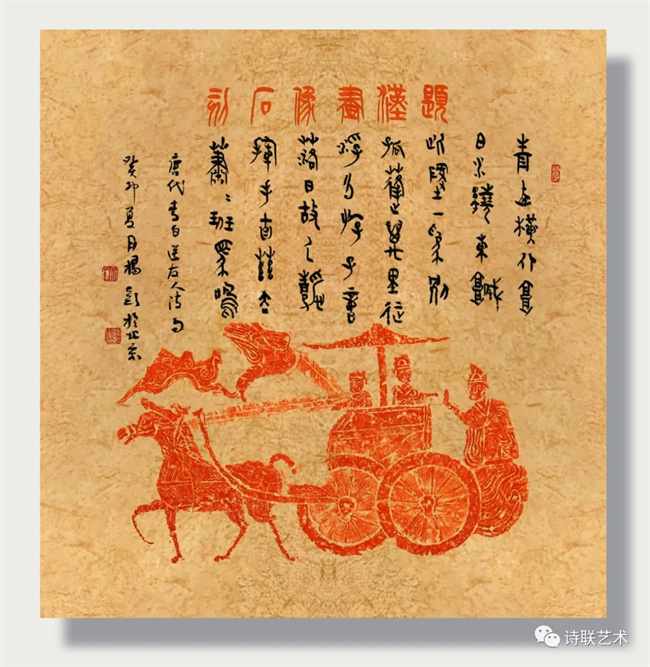 題漢畫像石刻
青山橫北郭
白水繞東城
此地一為別
孤蓬萬里征
浮雲游子意
落日故人情
揮手自茲去
蕭〻班馬鳴
唐代李白送友人诗句
癸卯夏月楊於北京
诗联艺术